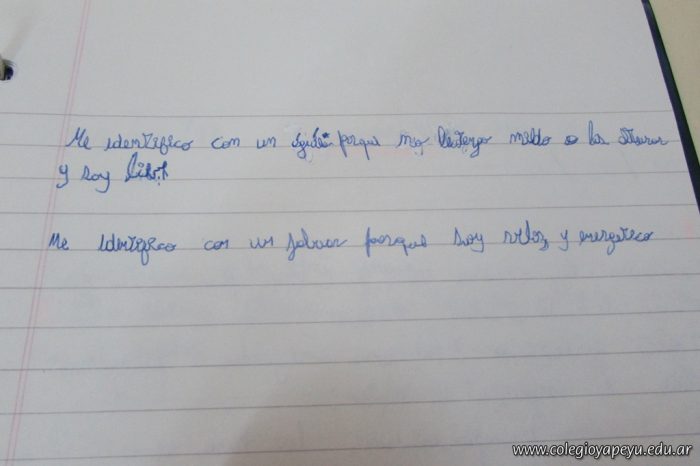 Me identifico con un porque no le tengo miedo a las alturas
y soy libre
Me identifico con un porque soy veloz y energetico
www.colegioyapeyu.edu.ar